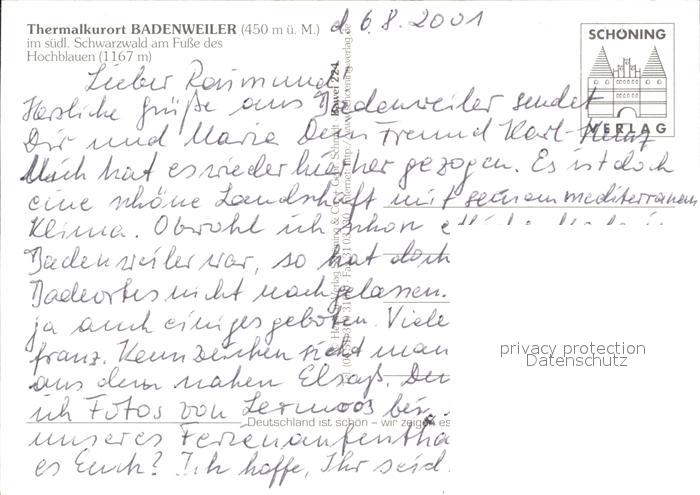 Thermalkurort BADENWEILER (450 m ü. M.)
im südl. Schwarzwald am Fuße des
Hochblauen (1167 m)
d. 6.8.2001
SCHÖNING
VERLAG
Lieber Raimund
Herzliche Grüße aus Badenweiler sendet
Dir und Maria Dein Freund Karl-Heinz
Mich hat es wieder hierher gezogen. Es ist doch
eine schöne Landschaft mit seinem mediterranen
Klima. Obwohl ich schon
Badenweiler war, so hat doch
Badeortes nicht nachgelassen.
ja auch einiges geboten. Viele
franz. Kennzeichen sieht man
aus dem nahen Elsaß. Den
ich Fotos von Lermoos bei
Deutschland ist schön – wir zeigen es
unseres Ferienaufentha
es Euch? Ich hoffe, Ihr seid
privacy protection
Datenschutz